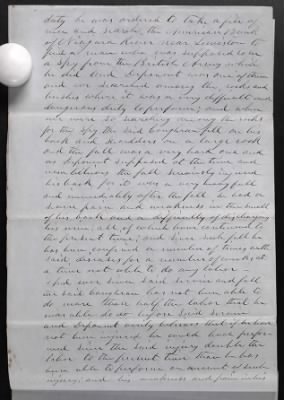 duty he was ordered to take a file of
men and search the American Bank
of Niagara River near Lewiston to
find a man who was supposed to be
a Spy from the British Army which
he did And Deponent was one of them
and we searched among the rocks and
bushes where it was a very difficult and
dangerous duty to perform; and when
we were so searching among the rocks
for the Spy the said Coughran fell on his
back and Shoulders on a large rock
and the fall was a very hard one and
as deponent supposed at the time and
now believes the fall seriously injured
his back for it was a very heavy fall
and immediately after the fall he had a
severe pain and weakness in the small
of his back and a difficulty of discharging
his urine, all of which have continued to
the present time; and Since Said fall he
has been confined a number of times with
Said diseases for a number of weeks at
a time not able to do any labor -
And ever since Said service and fall
the said Coughran has not been able to
do more than half the labor that he
was able to do before Said service
and Deponent verily believes that if he had
not been injured he could have perfor
med since the said injury double the
labor to the present time than he has
been able to perform on account of such
injury, and his weakness and pain in his